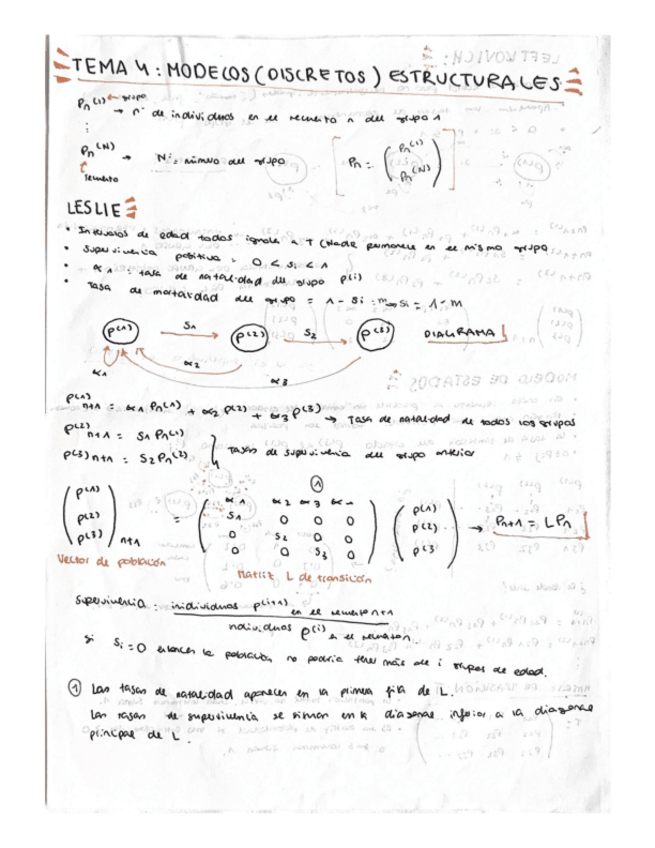 TEMA 4: MODELOS (DISCRETOS) ESTRUCTURALES
Pn(1) ← grupo
→ nº de individuos en el recuento n del grupo 1
⋮
Pn(N) → N: número del grupo
↑ recuento
Pn = ( Pn(1) ⋮ Pn(N) )
LESLIE
• Intervalos de edad todos iguales a T (Nadie permanece en el mismo grupo
• Supervivencia positiva = 0 < Si < 1
• α1: tasa de natalidad del grupo p(i)
• Tasa de mortalidad del grupo = 1 - Si = m → Si = 1 - m
P(1) S1 P(2) S2 P(3) DIAGRAMA
α1 α2
α3
P(1) n+1 = α1 Pn(1) + α2 P(2) + α3 P(3) → Tasa de natalidad de todos los grupos
P(2) n+1 = S1 Pn(1)
P(3) n+1 = S2 Pn(2) } Tasas de supervivencia del grupo anterior
①
P(1) α1 α2 α3 P(1)
P(2) S1 0 0 0 P(2) → Pn+1 = LPn
P(3) n+1 = 0 S2 0 0 P(3)
0 0 S3 0
Vector de población
Matriz L de transición
Supervivencia: individuos p(i+1) en el recuento n+1
individuos p(i) en el recuento n.
si Si = 0 entonces la población no podría tener más de i grupos de edad.
① Las tasas de natalidad aparecen en la primera fila de L.
Las tasas de supervivencia se sitúan en la diagonal inferior a la diagonal
principal de L.